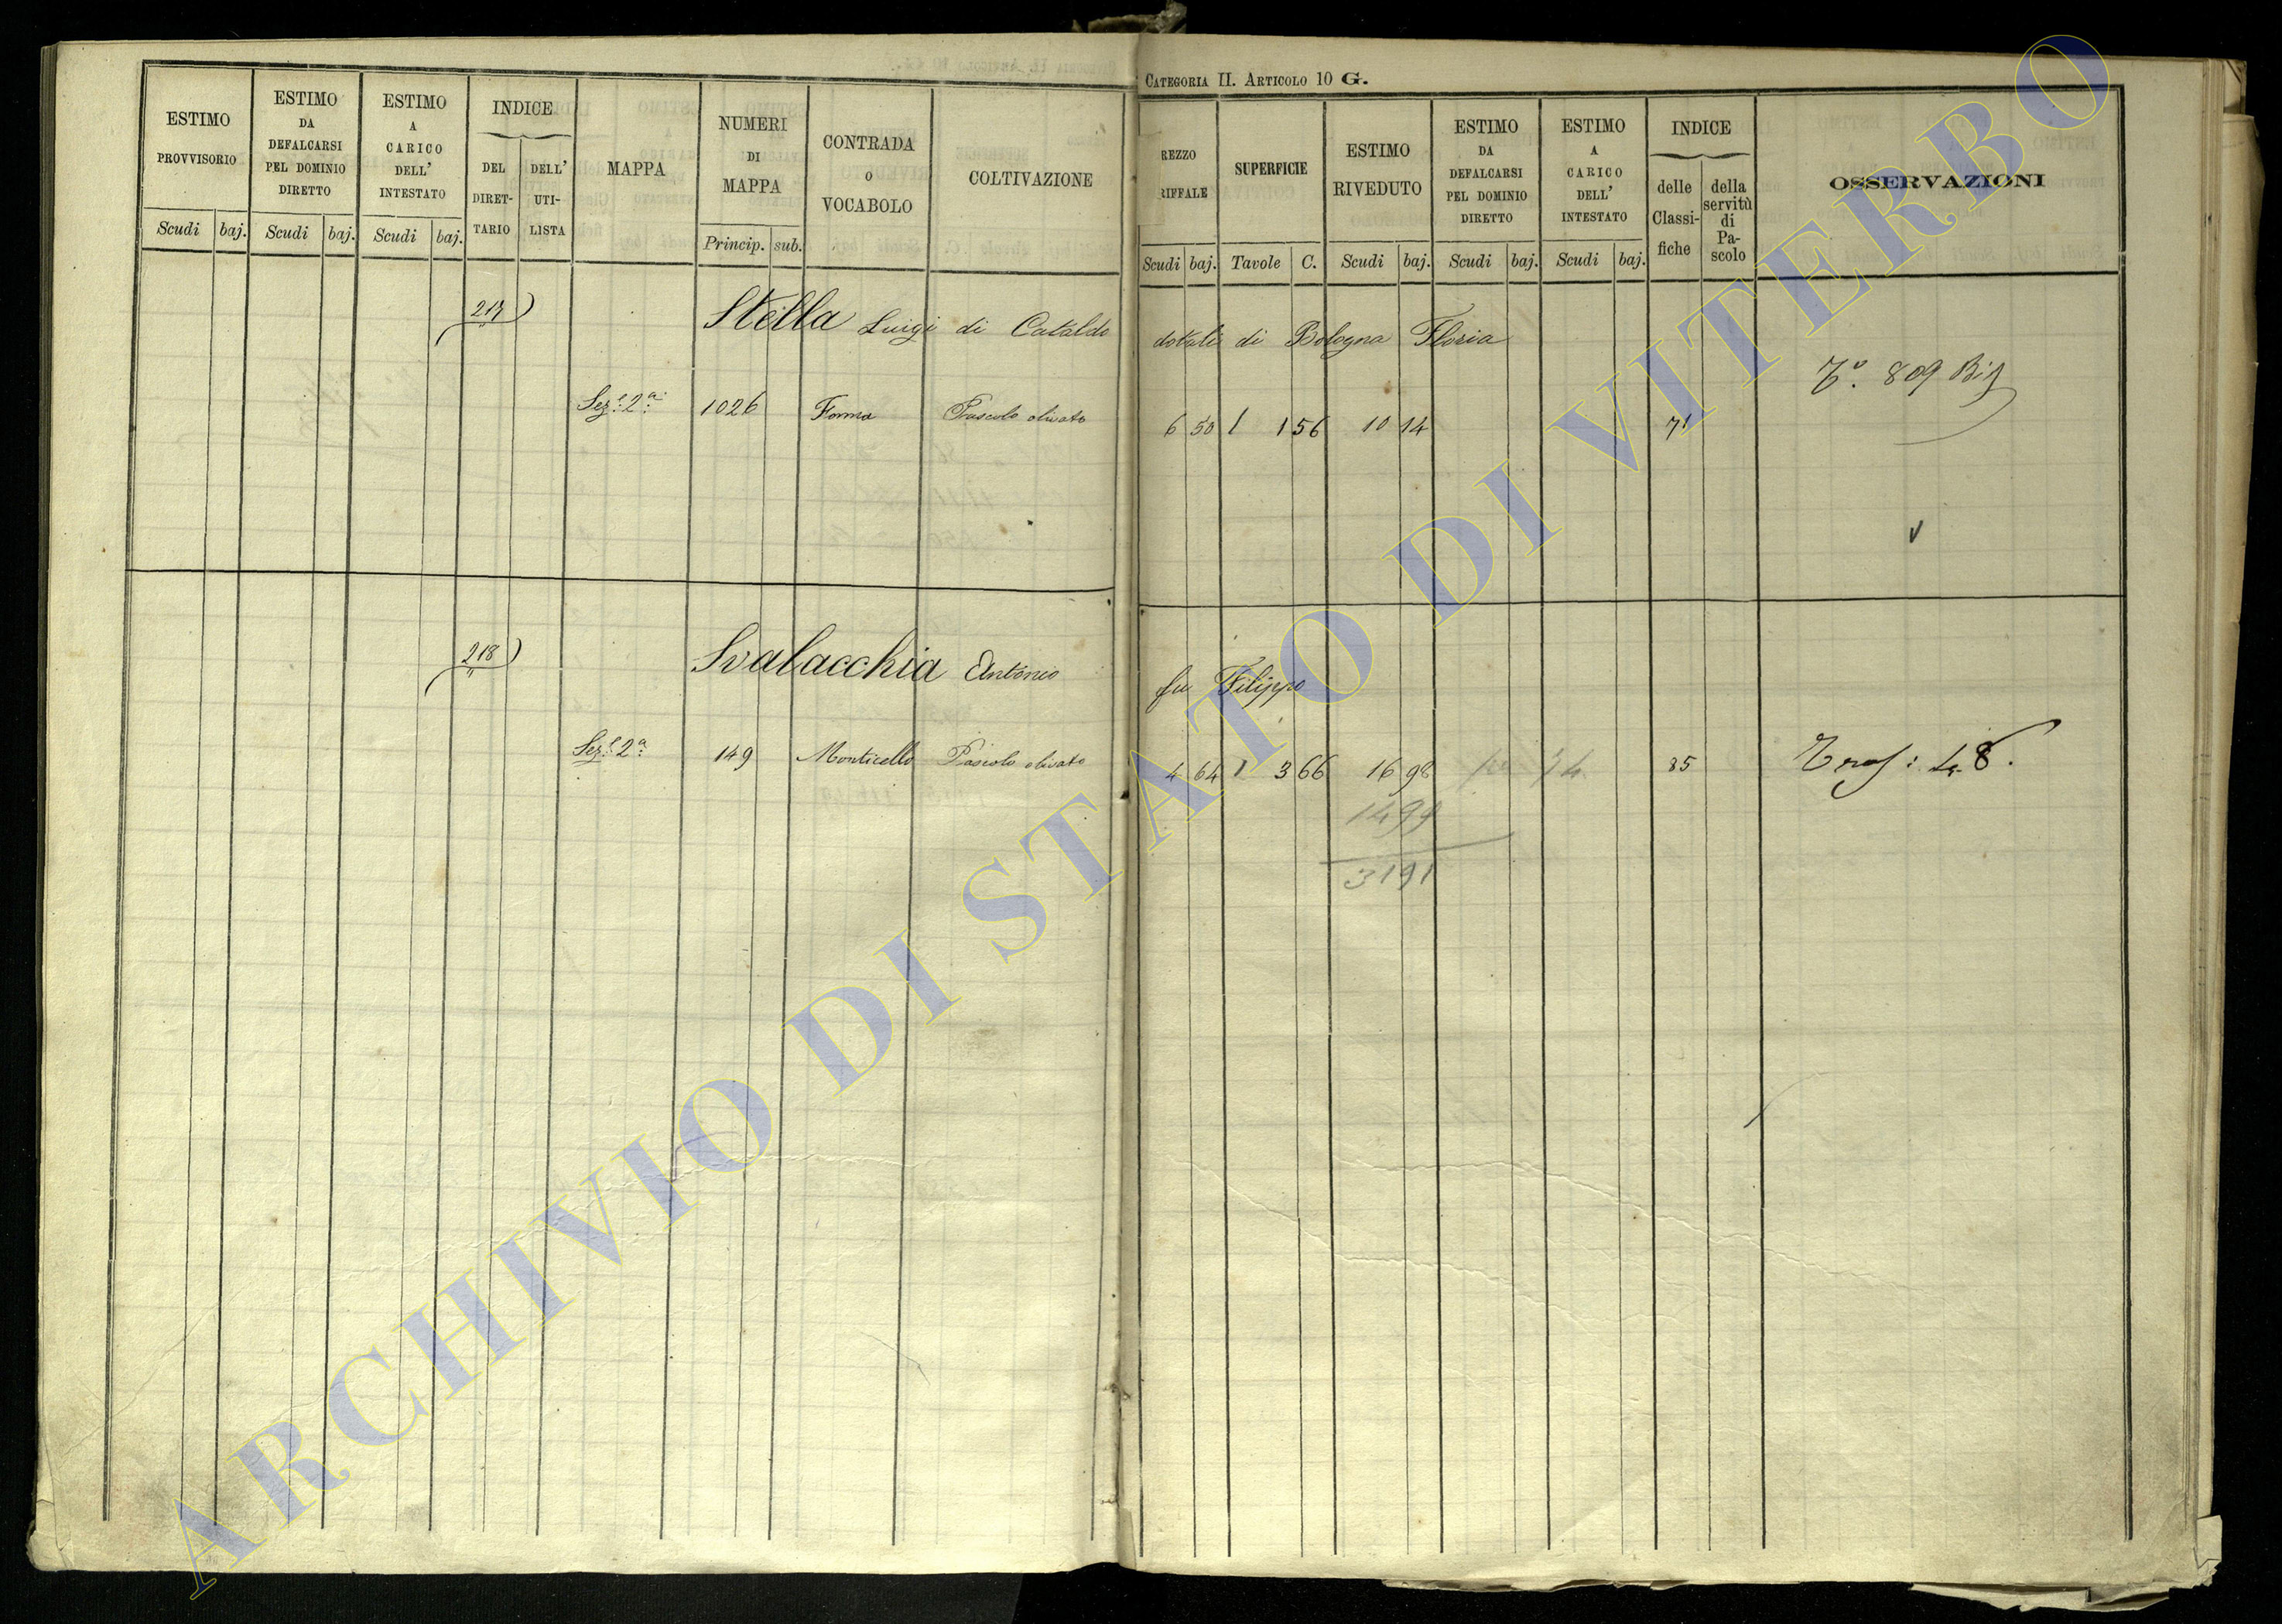 CATEGORIA II. ARTICOLO 10 G.
ESTIMO PROVVISORIO
Scudi baj.
ESTIMO DA DEFALCARSI PEL DOMINIO DIRETTO
Scudi baj.
ESTIMO A CARICO DELL' INTESTATO
Scudi baj.
INDICE
DEL DIRET- TARIO
DELL' UTI- LISTA
MAPPA
NUMERI DI MAPPA
Princip. sub.
CONTRADA O VOCABOLO
COLTIVAZIONE
REZZO
RIFFALE
Scudi baj.
SUPERFICIE
Tavole C.
ESTIMO RIVEDUTO
Scudi baj.
ESTIMO DA DEFALCARSI PEL DOMINIO DIRETTO
Scudi baj.
ESTIMO A CARICO DELL' INTESTATO
Scudi baj.
INDICE
delle Classi- fiche
della servitù di Pa- scolo
OSSERVAZIONI
217) Stella Luigi di Cataldo dotali di Bologna Floria
Tº. 809 Bis
Sez.e 2a 1026 Forma Pascolo olivato 6 50 1 1 56 10 14 71
218) Svalacchia Antonio fu Filippo
Sez.e 2a 149 Monticello Pascolo olivato 4 64 1 3 66 16 98 85 Tras: 48.
1499
3191
ARCHIVIO DI STATO DI VITERBO